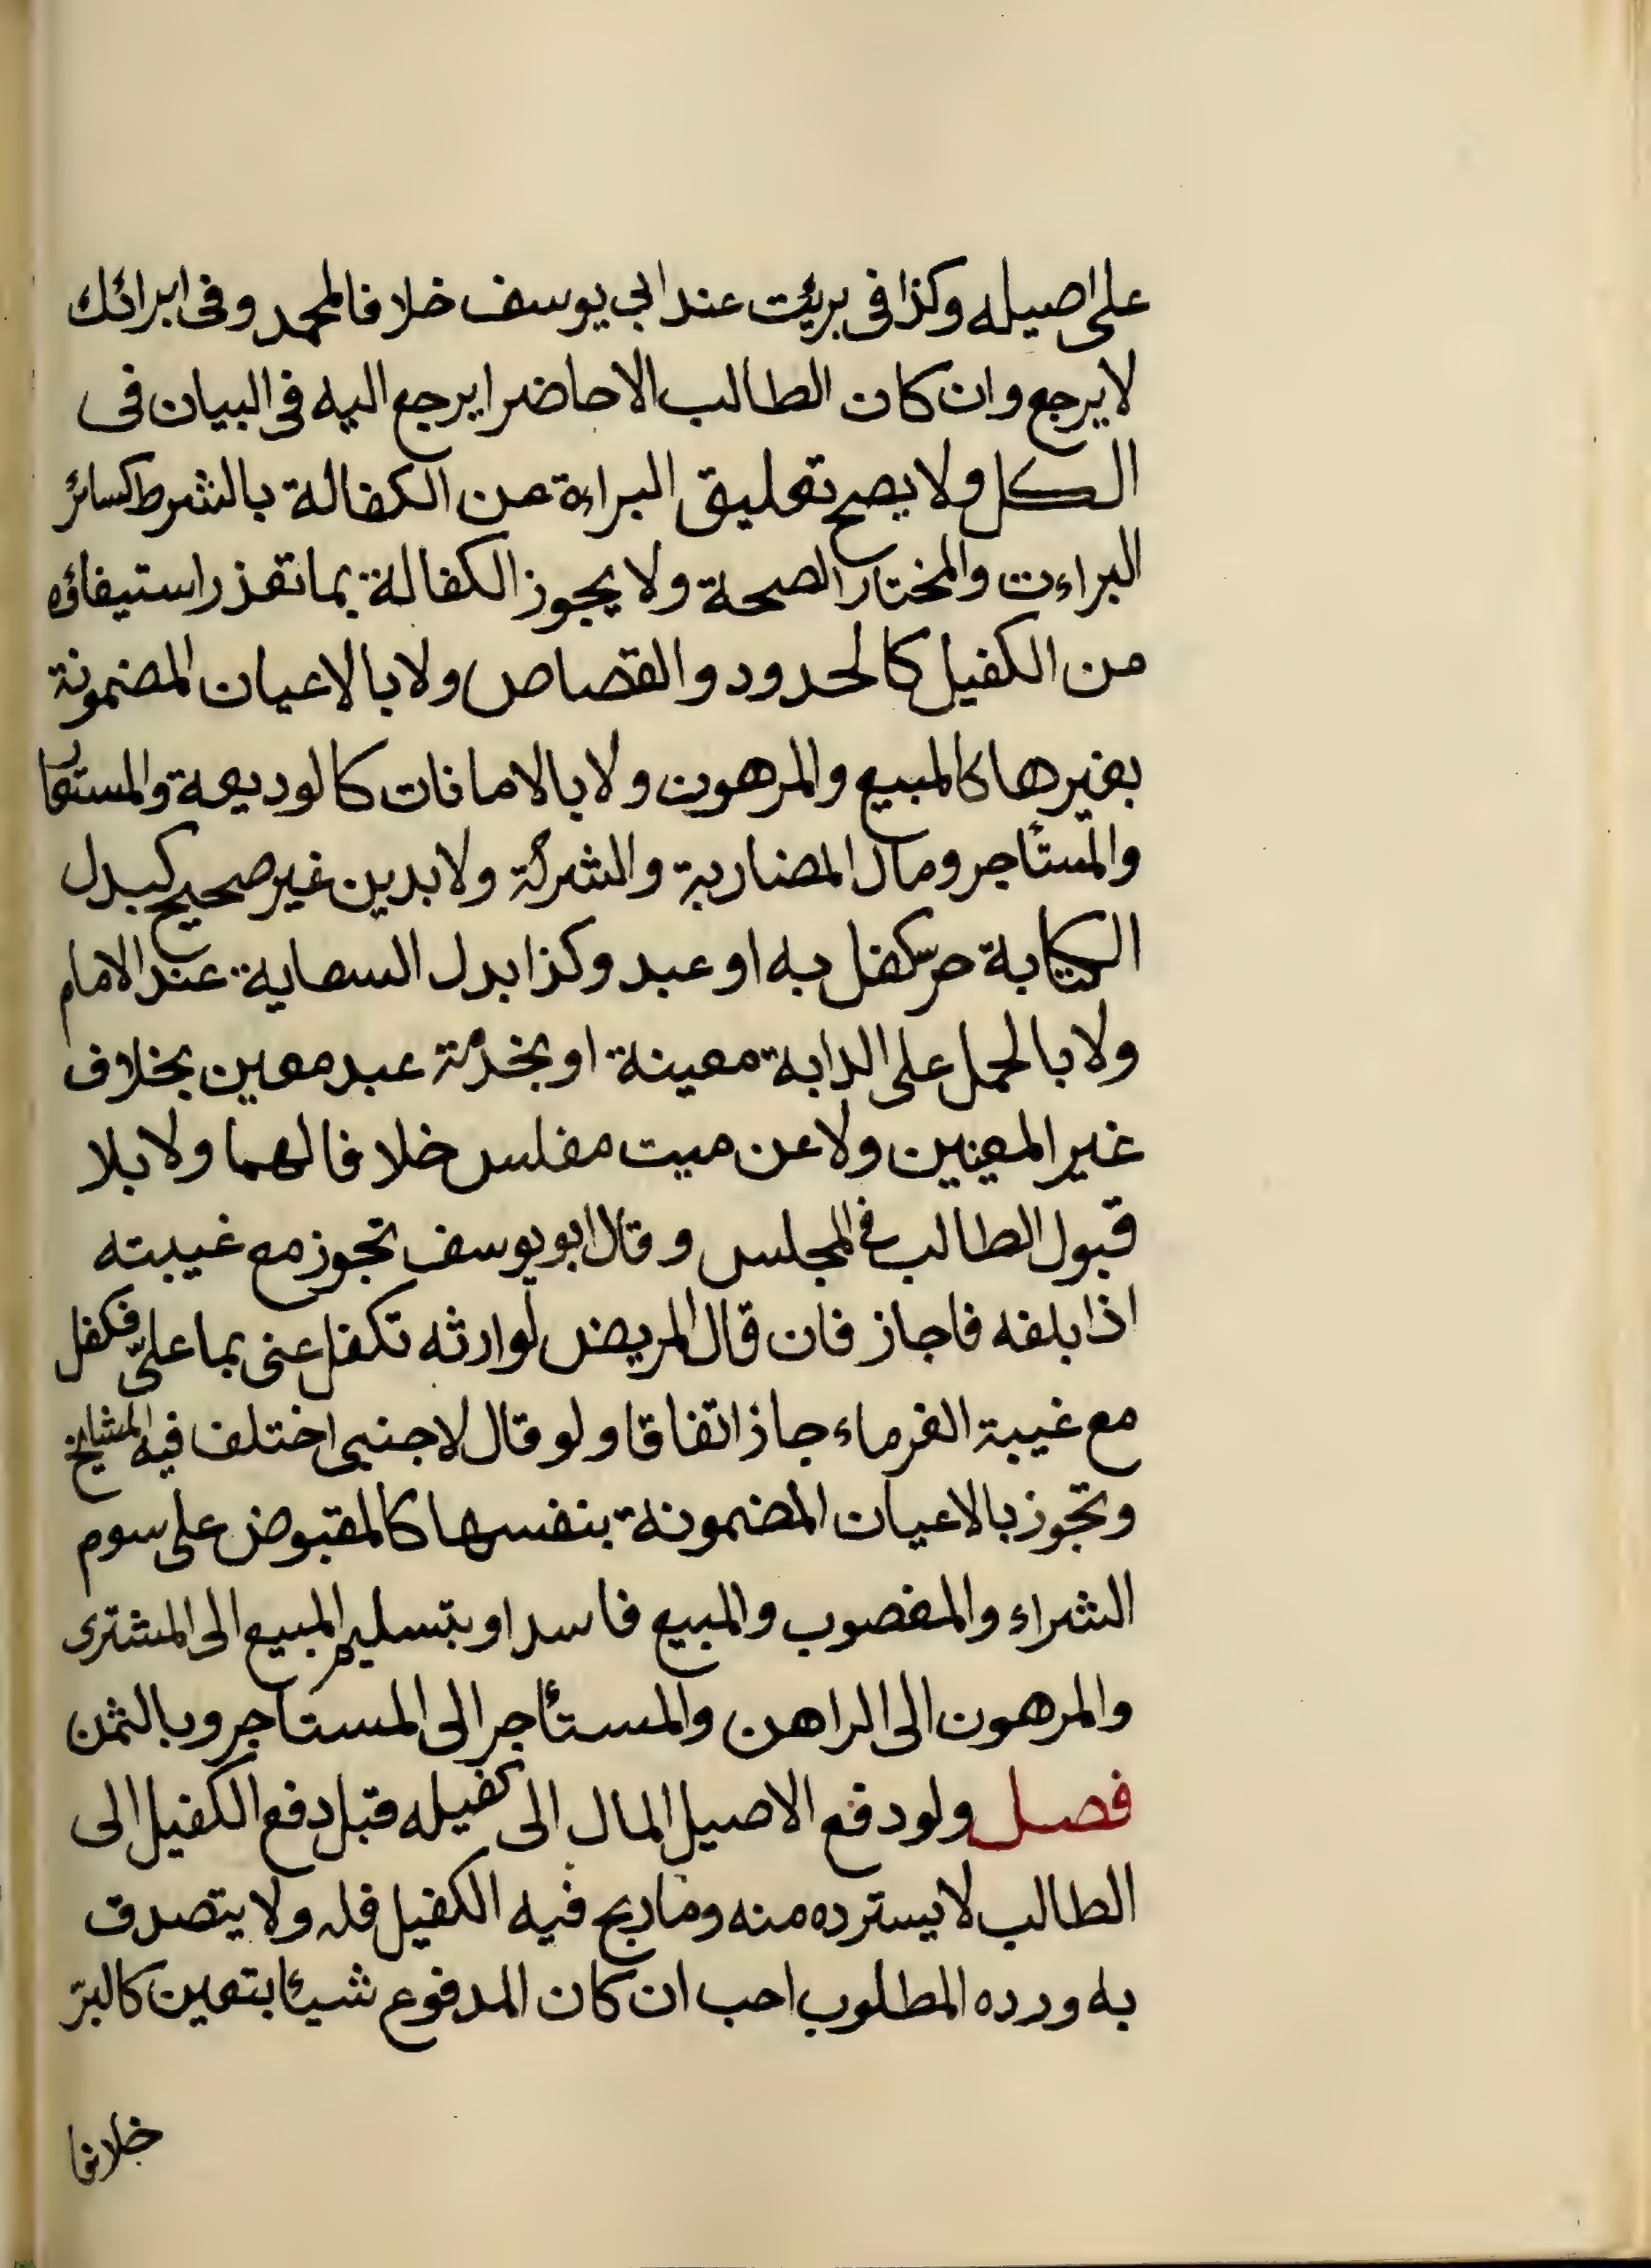 على اصيله وكذا فى بريئت عند ابي يوسف خلافا لمحمد وفى ابرائك
لا يرجع وان كان الطالب الاحاضرا يرجع اليه فى البيان فى
الكل ولا يصح تعليق البراءة عن الكفالة بالشرط كسائر
البراءت والمختار الصحة ولا يجوز الكفالة بما تعذر استيفاؤه
من الكفيل كالحدود والقصاص ولا بالاعيان المضمونة
بغيرها كالمبيع والمرهون ولا بالامانات كالوديعة والمستعار
والمستأجر ومال المضاربة والشركة ولا بدين غير صحيح كبدل
الكتابة حر كفل به او عبد وكذا بدل السعاية عند الامام
ولا بالحمل على الدابة معينة او بخدمة عبد معين بخلاف
غير المعينين ولا عن ميت مفلس خلافا لهما ولا بلا
قبول الطالب في المجلس وقال ابو يوسف تجوز مع غيبته
اذا بلغه فاجاز فان قال المريض لوارثه تكفل عنى بما علىّ فكفل
مع غيبة الغرماء جاز اتفاقا ولو قال لاجنبى اختلف فيه المشايخ
وتجوز بالاعيان المضمونة بنفسها كالمقبوض على سوم
الشراء والمغصوب والمبيع فاسدا وبتسليم المبيع الى المشترى
والمرهون الى الراهن والمستأجر الى المستأجر وبالثمن
فصل ولو دفع الاصيل المال الى كفيله قبل دفع الكفيل الى
الطالب لا يسترده منه وما ربح فيه الكفيل فله ولا يتصدق
به ورده المطلوب احب ان كان المدفوع شيئا بتعين كالبرّ
خلافا